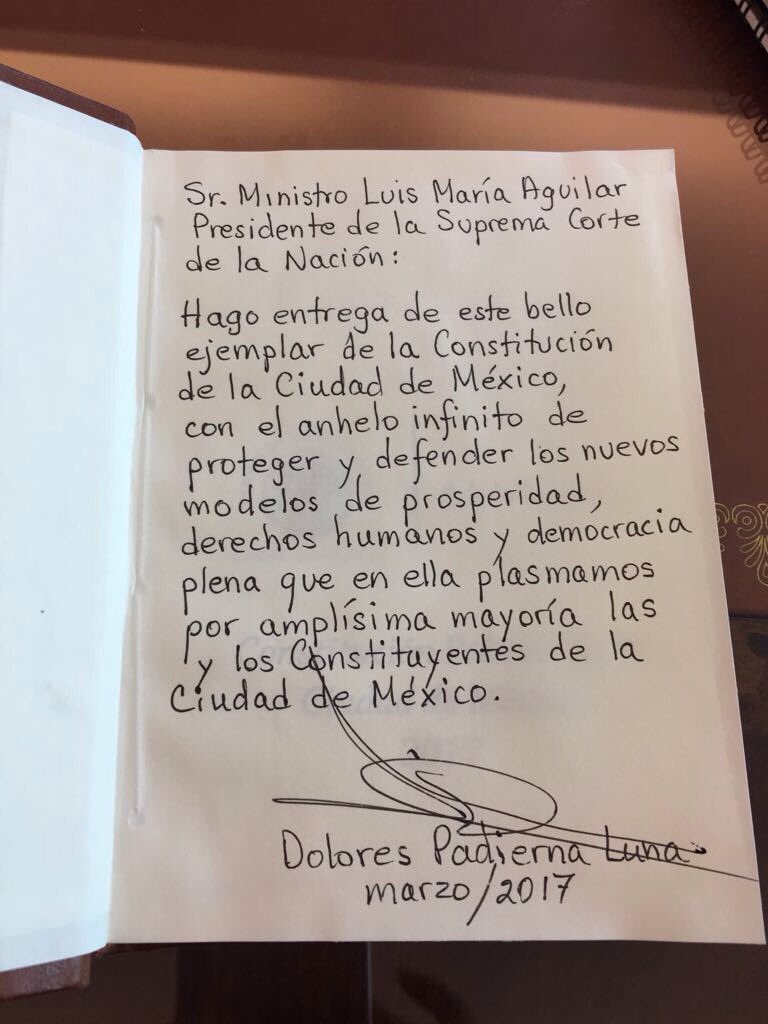 Sr. Ministro Luis María Aguilar
Presidente de la Suprema Corte
de la Nación:
Hago entrega de este bello
ejemplar de la Constitución
de la Ciudad de México,
con el anhelo infinito de
proteger y defender los nuevos
modelos de prosperidad,
derechos humanos y democracia
plena que en ella plasmamos
por amplísima mayoría las
y los Constituyentes de la
Ciudad de México.
Dolores Padierna Luna
marzo/2017